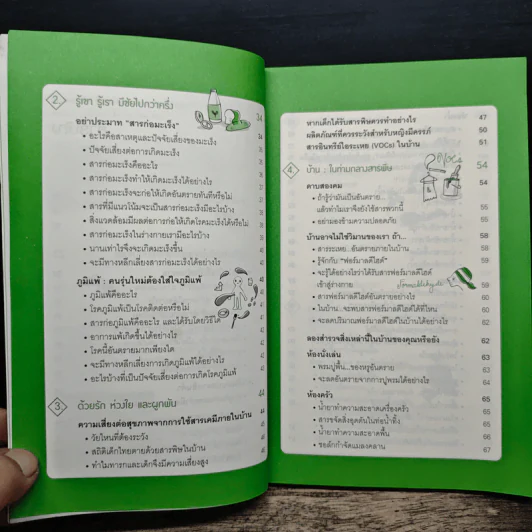 2. รู้เขา รู้เรา มีชัยไปกว่าครึ่ง 34
อย่าประมาท "สารก่อมะเร็ง" 34
• อะไรคือสาเหตุและปัจจัยเสี่ยงของมะเร็ง
• ปัจจัยเสี่ยงต่อการเกิดมะเร็ง
• สารก่อมะเร็งคืออะไร
• สารก่อมะเร็งทำให้เกิดมะเร็งได้อย่างไร
• สารก่อมะเร็งจะก่อให้เกิดอันตรายทันทีหรือไม่
• สารที่มีแนวโน้มจะเป็นสารก่อมะเร็งมีอะไรบ้าง
• สิ่งแวดล้อมมีผลต่อการก่อให้เกิดโรคมะเร็งได้หรือไม่
• สารก่อมะเร็งในร่างกายเรามีอะไรบ้าง
• นานเท่าไรจึงจะเกิดมะเร็งขึ้น
• จะมีทางหลีกเลี่ยงสารก่อมะเร็งได้อย่างไร
ภูมิแพ้ : คนรุ่นใหม่ต้องใส่ใจภูมิแพ้
• ภูมิแพ้คืออะไร
• โรคภูมิแพ้เป็นโรคติดต่อหรือไม่
• สารก่อภูมิแพ้คืออะไร และได้รับโดยวิธีใด
• อาการแพ้เกิดขึ้นได้อย่างไร
• โรคนี้อันตรายมากเพียงใด
• จะมีทางหลีกเลี่ยงการเกิดภูมิแพ้ได้อย่างไร
• อะไรบ้างที่เป็นปัจจัยเสี่ยงต่อการเกิดโรคภูมิแพ้
3. ด้วยรัก ห่วงใย และผูกพัน 44
ความเสี่ยงต่อสุขภาพจากการใช้สารเคมีภายในบ้าน 44
• วัยไหนที่ต้องระวัง 45
• สถิติเด็กไทยตายด้วยสารพิษในบ้าน
• ทำไมทารกและเด็กจึงมีความเสี่ยงสูง
หากเด็กได้รับสารพิษควรทำอย่างไร 47
ผลิตภัณฑ์ที่ควรระวังสำหรับหญิงมีครรภ์ 50
สารอินทรีย์ไอระเหย (VOCs) ในบ้าน 51
VOCs
4. บ้าน : ในท่ามกลางสารพิษ 54
คาบสองคม 54
• ถ้ารู้ว่ามันเป็นอันตราย...
แล้วทำไมเราจึงยังใช้สารพวกนี้
• อย่ามองข้ามความปลอดภัย
บ้านอาจไม่ใช่วิมานของเรา ถ้า... 58
• สารระเหย...อันตรายภายในบ้าน 58
• รู้จักกับ "ฟอร์มาลดีไฮด์" 59
• จะรู้ได้อย่างไรว่าได้รับสารฟอร์มาลดีไฮด์
เข้าสู่ร่างกาย
Formaldehyde
• สารฟอร์มาลดีไฮด์อันตรายอย่างไร 60
• ในบ้าน...จะพบสารฟอร์มาลดีไฮด์ได้ที่ไหน 60
• จะลดปริมาณฟอร์มาลดีไฮด์ในบ้านได้อย่างไร
ลองสำรวจสิ่งเหล่านี้ในบ้านของคุณหรือยัง 62
ห้องนั่งเล่น 63
• พรมปูพื้น...ของหรูอันตราย 63
• จะลดอันตรายจากการปูพรมได้อย่างไร 64
ห้องครัว 65
• น้ำยาทำความสะอาดเครื่องครัว 65
• สารขจัดสิ่งอุดตันในท่อน้ำทิ้ง 65
• น้ำยาทำความสะอาดพื้น 66
• ชอล์กกำจัดแมลงคลาน 67